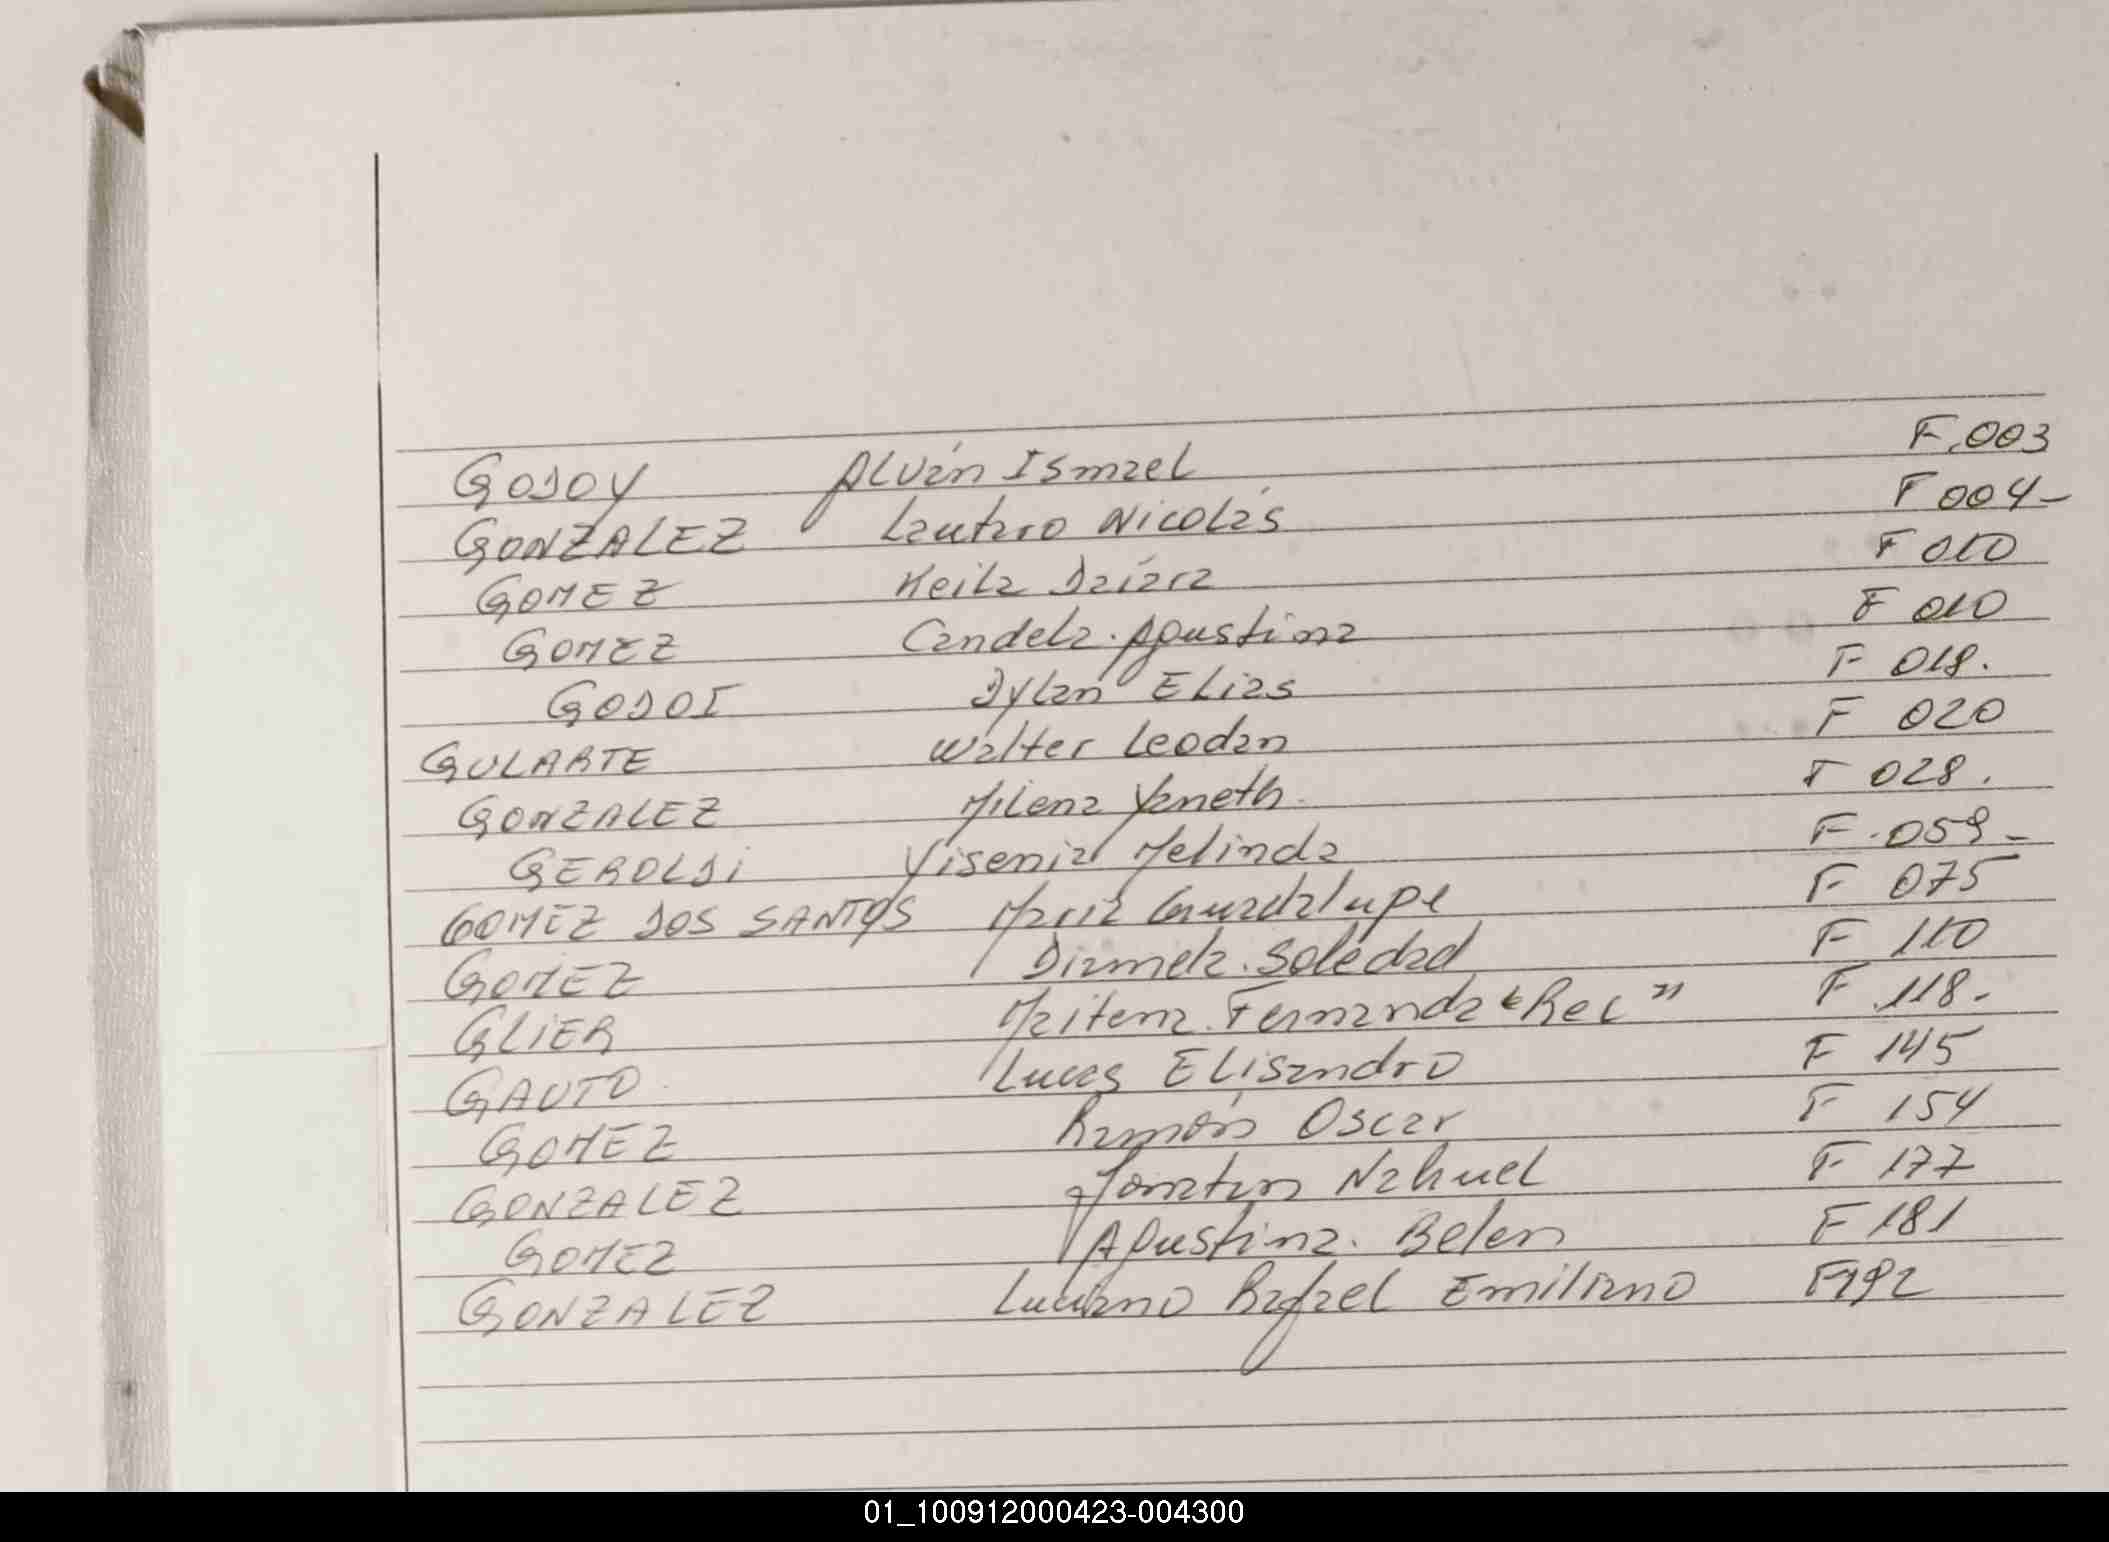 GODOY Alván Ismael F.003
GONZALEZ Lautaro Nicolás F 004-
GOMEZ Keila Daíara F 010
GOMEZ Candela. Agustina F 010
GODOI Dylan Elias F 018.
GULARTE Walter Leodan F 020
GONZALEZ Milena Yaneth. F 028.
GEROLDI Yisenia Melinda F.059-
GOMEZ DOS SANTOS María Guadalupe F 075
GOMEZ Diamela. Soledad F 110
GLIER Maitena. Fernanda "Rec" F.118.
GAUTO Lucas Elisandro F 145
GOMEZ Ramón Oscar F 154
GONZALEZ Jonatan Nahuel F 177
GOMEZ Agustina. Belen F 181
GONZALEZ Luciano Rafael Emiliano F192
01_100912000423-004300